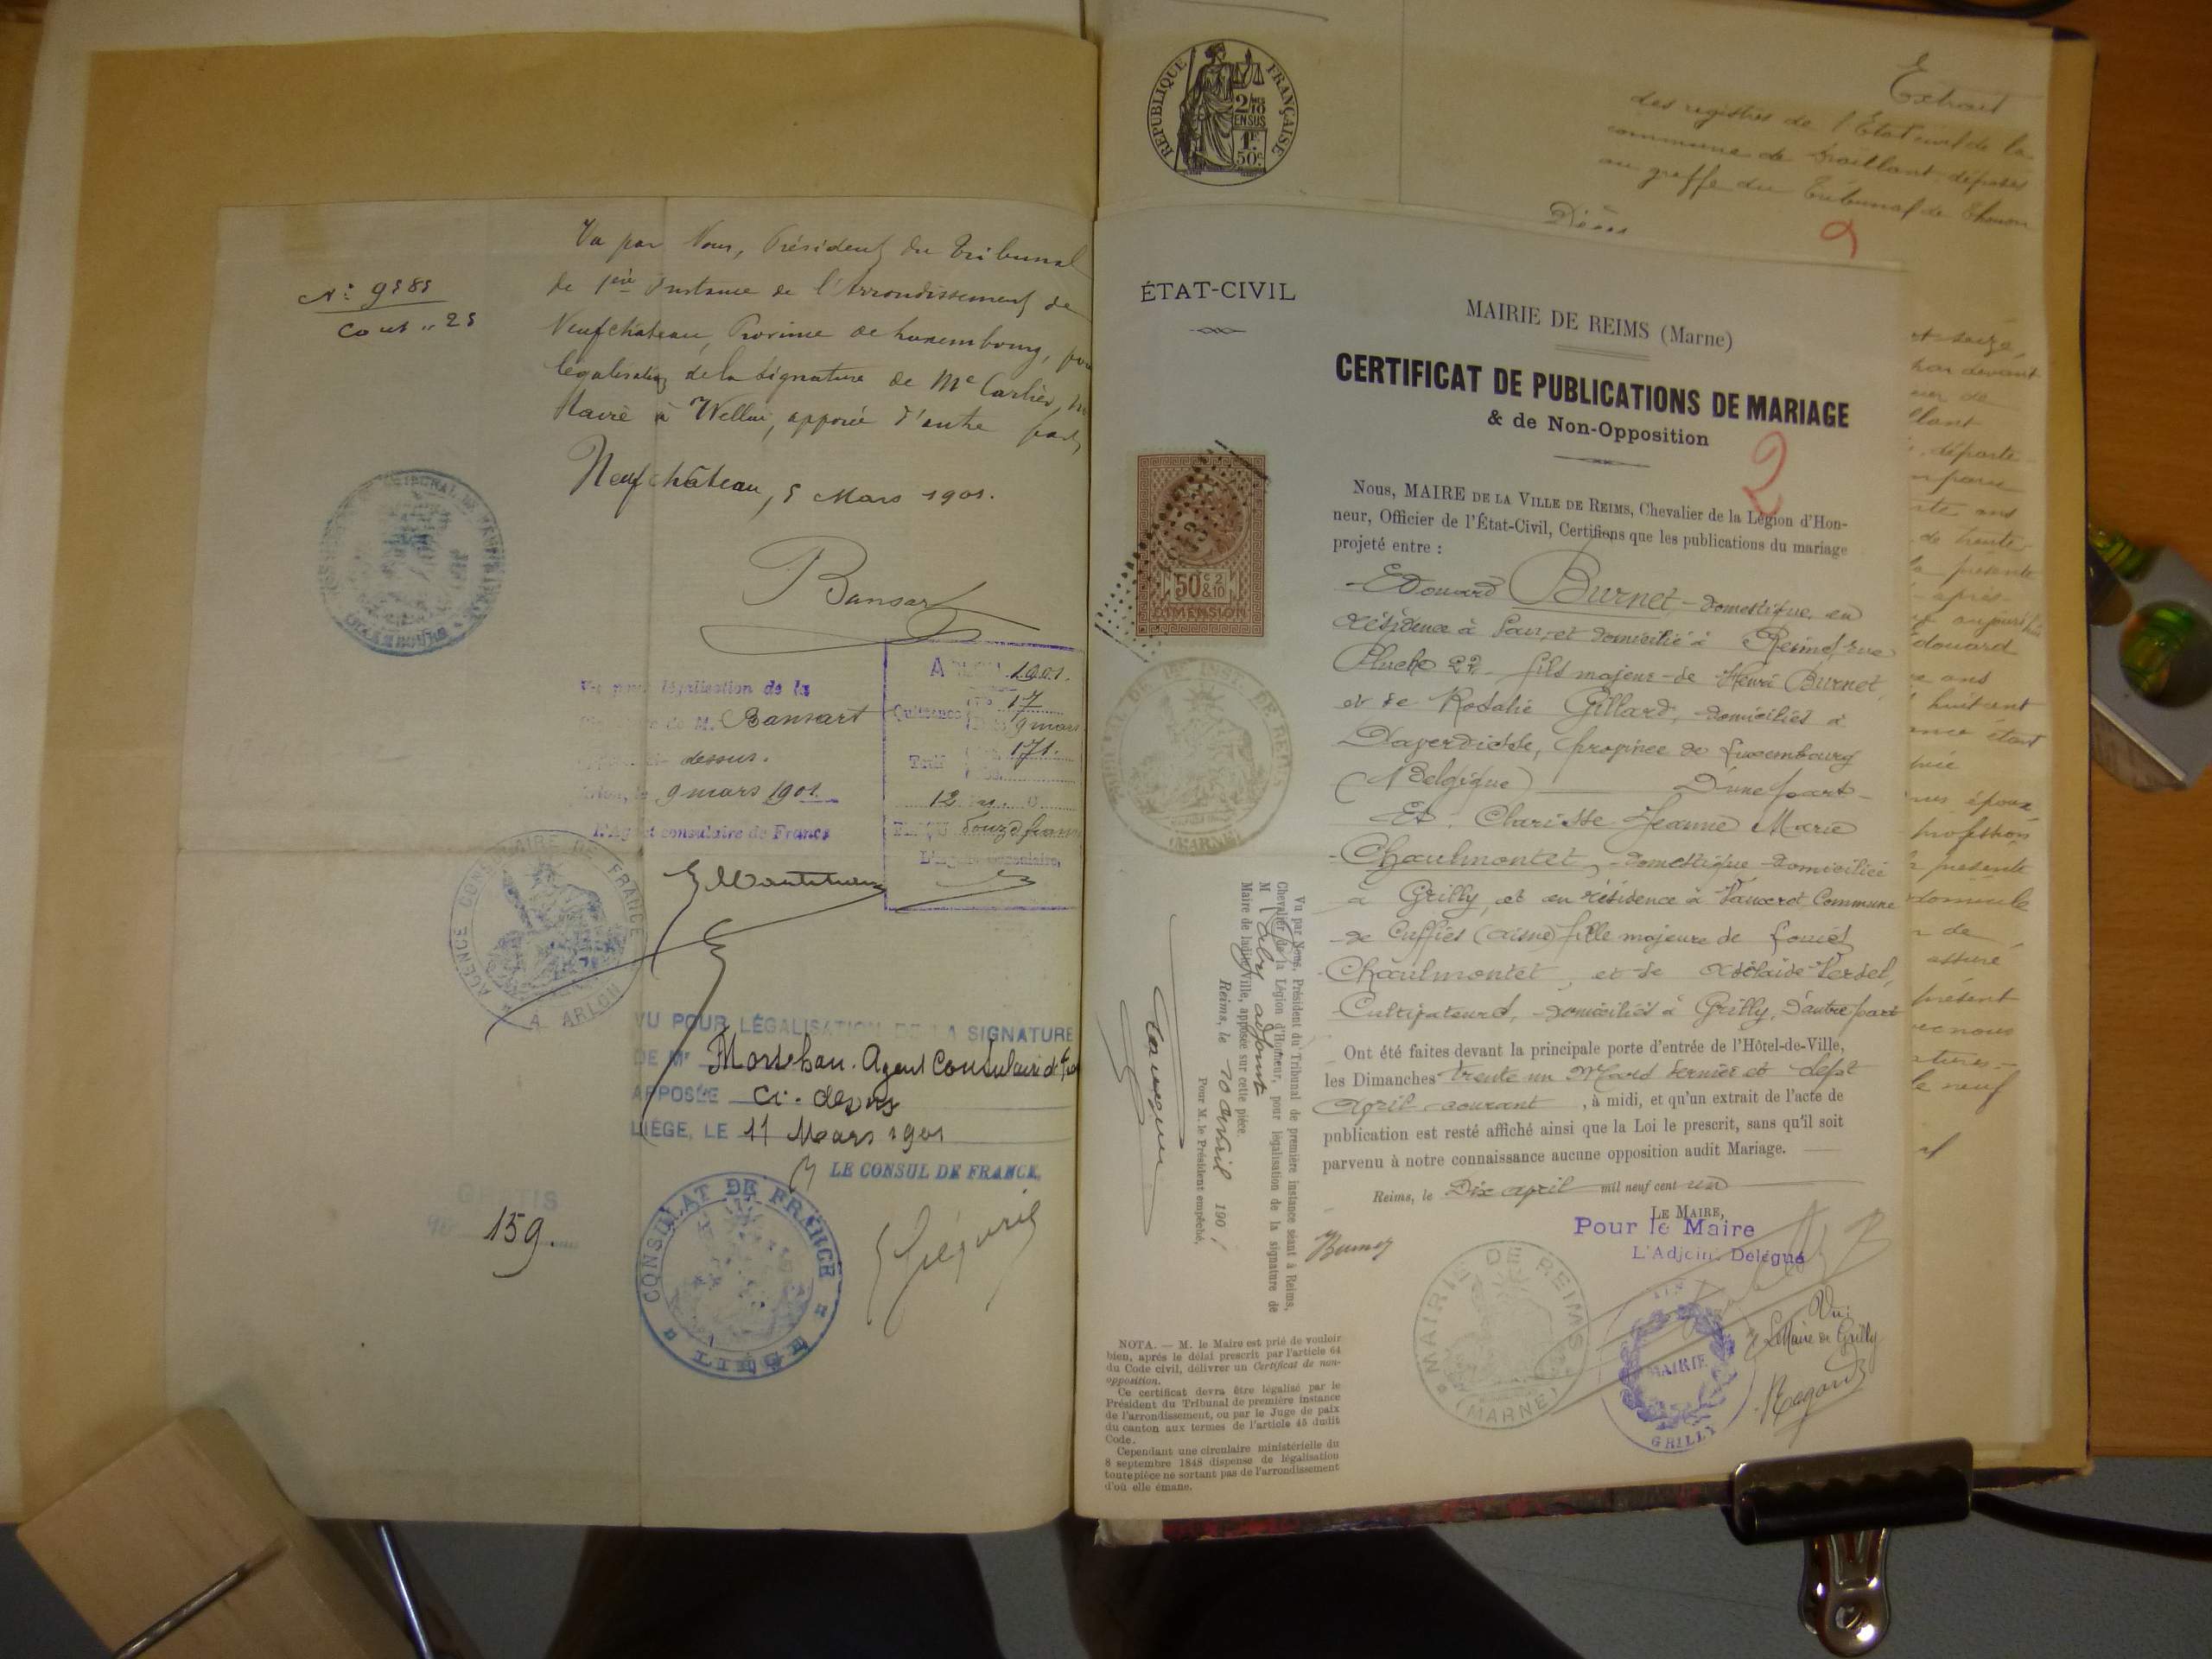 N° 9585
Cout " 25
Vu par Nous, Président du Tribunal
de 1ère Instance de l'Arrondissement de
Neufchateau, Province de Luxembourg, pour
légalisation de la signature de Me Carlier, no
taire à Wellin, apposée d'autre part,
Neufchâteau, 5 Mars 1901.
Bansart
légalisation de la
de M. Bansart
dessus.
9 mars 1901
L'Agent consulaire de France
1901.
Quittance 17
9 mars
Tarif 171.
12
douze francs
L'Agent consulaire,
AGENCE CONSULAIRE DE FRANCE
À ARLON
VU POUR LÉGALISATION DE LA SIGNATURE
DE Mr Mortehan. Agent Consulaire de
APPOSÉE ci-dessus
LIÈGE, LE 11 Mars 1901
LE CONSUL DE FRANCE.
GRATIS
159.
CONSULAT DE FRANCE
LIÉGE
RÉPUBLIQUE FRANÇAISE
2/10
EN SUS
1F.
50c.
Extrait
des registres de l'Etat civil de la
commune de Draillant déposés
au greffe du Tribunal de Thonon
Décès
9
ÉTAT-CIVIL
MAIRIE DE REIMS (Marne)
CERTIFICAT DE PUBLICATIONS DE MARIAGE
& de Non-Opposition
2
50c 2 &10
DIMENSION
TRIBUNAL DE 1RE INST. DE REIMS
(MARNE)
Nous, MAIRE DE LA VILLE DE REIMS, Chevalier de la Légion d'Hon-
neur, Officier de l'État-Civil, Certifions que les publications du mariage
projeté entre :
Edouard Burnet, domestique, en
résidence à Paur, et domicilié à Reims, rue
Pluche 22, fils majeur de Henri Burnet,
et de Rosalie Gillard, domiciliés à
Daverdisse, province de Luxembourg
(Belgique) D'une part
Et Clarisse Jeanne Marie
Chaulmontet, domestique domiciliée
à Grilly, et en résidence à Vauxrot Commune
de Cuffies (Aisne) fille majeure de Louis
Chaulmontet, et de Adélaïde Verdel,
Cultivateurs, domiciliés à Grilly, d'autre part
Ont été faites devant la principale porte d'entrée de l'Hôtel-de-Ville,
les Dimanches trente un Mars dernier et sept
April courant, à midi, et qu'un extrait de l'acte de
publication est resté affiché ainsi que la Loi le prescrit, sans qu'il soit
parvenu à notre connaissance aucune opposition audit Mariage.
Reims, le Dix april mil neuf cent un
LE MAIRE,
Pour le Maire
L'Adjoint Délégué
Burnet
MAIRIE DE REIMS
(MARNE)
MAIRIE
GRILLY
Vu:
Le Maire de Grilly
Regard
Vu par Nous, Président du Tribunal de première instance séant à Reims,
Chevalier de la Légion d'Honneur, pour légalisation de la signature de
M adjoint
Maire de ladite ville, apposée sur cette pièce.
Reims, le 10 avril 1901
Pour M. le Président empêché,
NOTA. — M. le Maire est prié de vouloir
bien, après le délai prescrit par l'article 64
du Code civil, délivrer un Certificat de non-
opposition.
Ce certificat devra être légalisé par le
Président du Tribunal de première instance
de l'arrondissement, ou par le Juge de paix
du canton aux termes de l'article 45 dudit
Code.
Cependant une circulaire ministérielle du
8 septembre 1848 dispense de légalisation
toute pièce ne sortant pas de l'arrondissement
d'où elle émane.
et seize,
par devant
de
llant
départe-
ans
de trente
la présente
après
aujourd'hui
Edouard
ans
huit cent
étant
époux
profession
la présente
domicile
de
assuré
présent
nous
le neuf